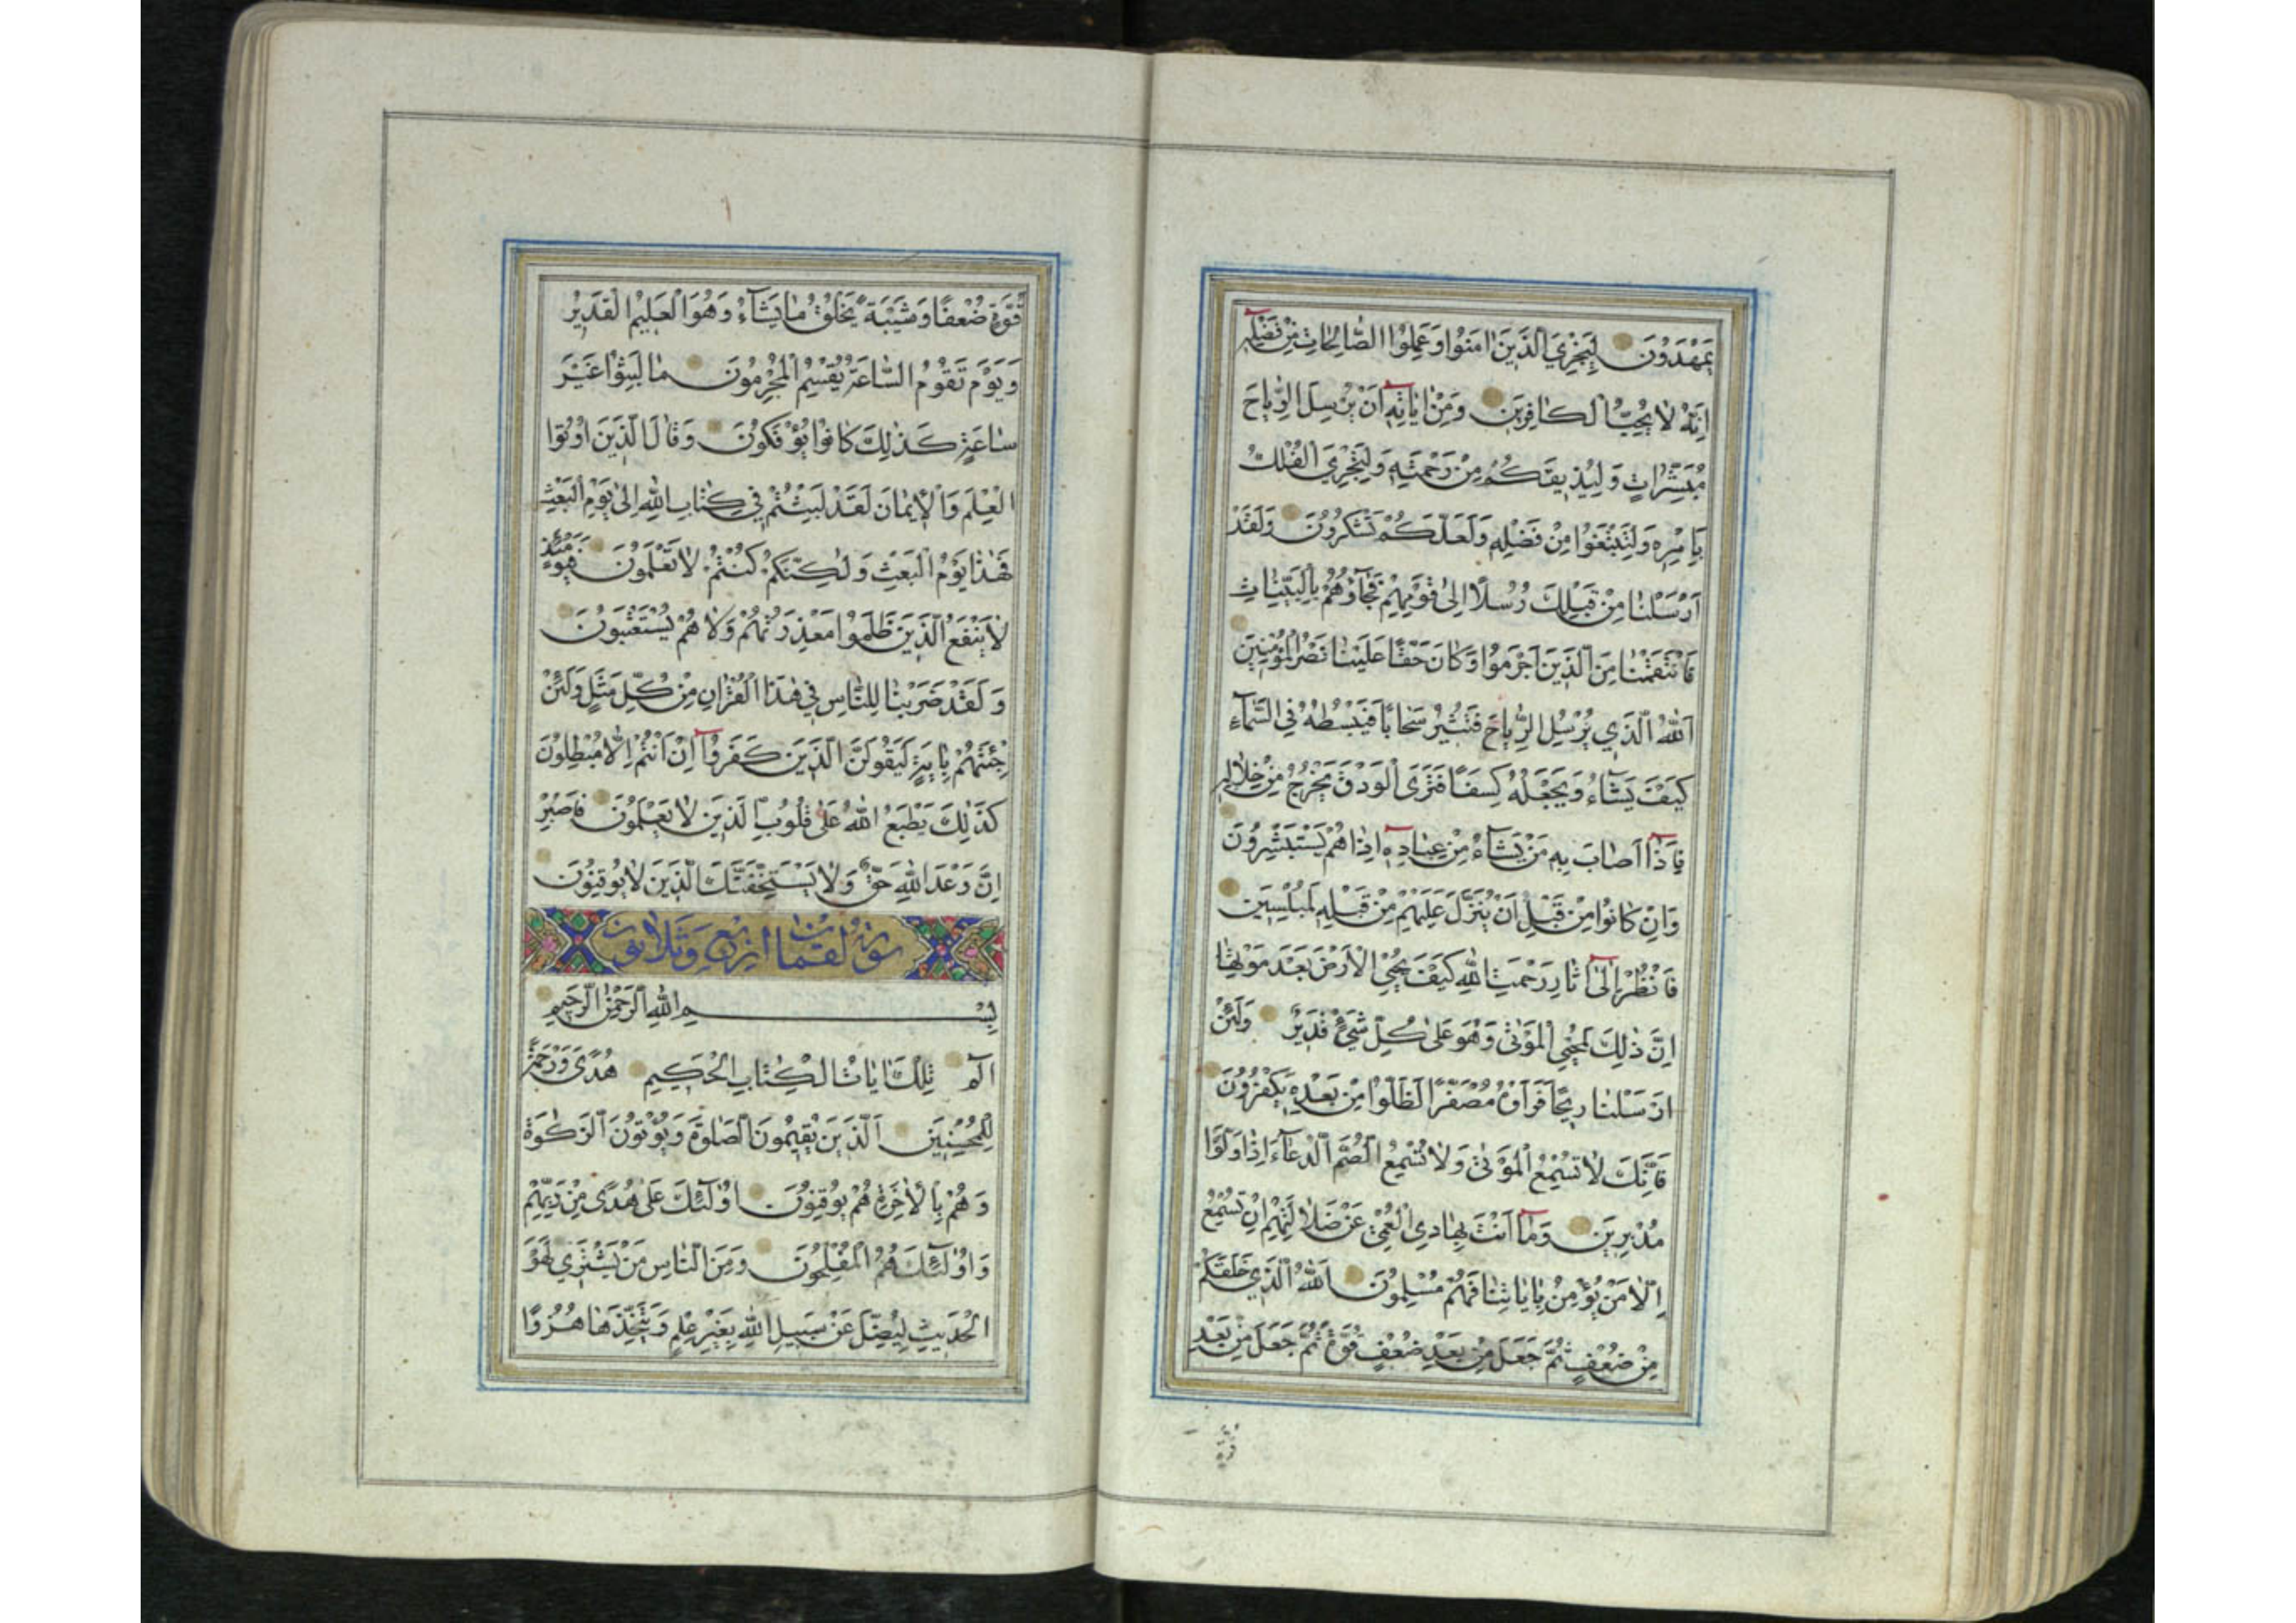 يَمْهَدُونَ لِيَجْزِيَ الَّذِينَ اٰمَنُوا وَعَمِلُوا الصَّالِحَاتِ مِنْ فَضْلِهِ
اِنَّهُ لَا يُحِبُّ الْكَافِرِينَ وَمِنْ اٰيَاتِهِ اَنْ يُرْسِلَ الرِّيَاحَ
مُبَشِّرَاتٍ وَلِيُذِيقَكُمْ مِنْ رَحْمَتِهِ وَلِتَجْرِيَ الْفُلْكُ
بِاَمْرِهِ وَلِتَبْتَغُوا مِنْ فَضْلِهِ وَلَعَلَّكُمْ تَشْكُرُونَ وَلَقَدْ
اَرْسَلْنَا مِنْ قَبْلِكَ رُسُلًا اِلٰى قَوْمِهِمْ فَجَآؤُهُمْ بِالْبَيِّنَاتِ
فَانْتَقَمْنَا مِنَ الَّذِينَ اَجْرَمُوا وَكَانَ حَقًّا عَلَيْنَا نَصْرُ الْمُؤْمِنِينَ
اَللّٰهُ الَّذِي يُرْسِلُ الرِّيَاحَ فَتُثِيرُ سَحَابًا فَيَبْسُطُهُ فِي السَّمَآءِ
كَيْفَ يَشَآءُ وَيَجْعَلُهُ كِسَفًا فَتَرَى الْوَدْقَ يَخْرُجُ مِنْ خِلَالِهِ
فَاِذَآ اَصَابَ بِهِ مَنْ يَشَآءُ مِنْ عِبَادِهِ اِذَا هُمْ يَسْتَبْشِرُونَ
وَاِنْ كَانُوا مِنْ قَبْلِ اَنْ يُنَزَّلَ عَلَيْهِمْ مِنْ قَبْلِهِ لَمُبْلِسِينَ
فَانْظُرْ اِلٰٓى اٰثَارِ رَحْمَتِ اللّٰهِ كَيْفَ يُحْيِي الْاَرْضَ بَعْدَ مَوْتِهَا
اِنَّ ذٰلِكَ لَمُحْيِي الْمَوْتٰى وَهُوَ عَلٰى كُلِّ شَيْءٍ قَدِيرٌ وَلَئِنْ
اَرْسَلْنَا رِيحًا فَرَاَوْهُ مُصْفَرًّا لَظَلُّوا مِنْ بَعْدِهِ يَكْفُرُونَ
فَاِنَّكَ لَا تُسْمِعُ الْمَوْتٰى وَلَا تُسْمِعُ الصُّمَّ الدُّعَآءَ اِذَا وَلَّوْا
مُدْبِرِينَ وَمَآ اَنْتَ بِهَادِي الْعُمْيِ عَنْ ضَلَالَتِهِمْ اِنْ تُسْمِعُ
اِلَّا مَنْ يُؤْمِنُ بِاٰيَاتِنَا فَهُمْ مُسْلِمُونَ اَللّٰهُ الَّذِي خَلَقَكُمْ
مِنْ ضُعْفٍ ثُمَّ جَعَلَ مِنْ بَعْدِ ضُعْفٍ قُوَّةً ثُمَّ جَعَلَ مِنْ بَعْدِ
قُوَّةٍ
قُوَّةٍ ضُعْفًا وَشَيْبَةً يَخْلُقُ مَا يَشَآءُ وَهُوَ الْعَلِيمُ الْقَدِيرُ
وَيَوْمَ تَقُومُ السَّاعَةُ يُقْسِمُ الْمُجْرِمُونَ مَا لَبِثُوا غَيْرَ
سَاعَةٍ كَذٰلِكَ كَانُوا يُؤْفَكُونَ وَقَالَ الَّذِينَ اُوتُوا
الْعِلْمَ وَالْاِيمَانَ لَقَدْ لَبِثْتُمْ فِي كِتَابِ اللّٰهِ اِلٰى يَوْمِ الْبَعْثِ
فَهٰذَا يَوْمُ الْبَعْثِ وَلٰكِنَّكُمْ كُنْتُمْ لَا تَعْلَمُونَ فَيَوْمَئِذٍ
لَا يَنْفَعُ الَّذِينَ ظَلَمُوا مَعْذِرَتُهُمْ وَلَا هُمْ يُسْتَعْتَبُونَ
وَلَقَدْ ضَرَبْنَا لِلنَّاسِ فِي هٰذَا الْقُرْاٰنِ مِنْ كُلِّ مَثَلٍ وَلَئِنْ
جِئْتَهُمْ بِاٰيَةٍ لَيَقُولَنَّ الَّذِينَ كَفَرُوٓا اِنْ اَنْتُمْ اِلَّا مُبْطِلُونَ
كَذٰلِكَ يَطْبَعُ اللّٰهُ عَلٰى قُلُوبِ الَّذِينَ لَا يَعْلَمُونَ فَاصْبِرْ
اِنَّ وَعْدَ اللّٰهِ حَقٌّ وَلَا يَسْتَخِفَّنَّكَ الَّذِينَ لَا يُوقِنُونَ
سورة لقمان اربع وثلاثون
بِسْمِ اللّٰهِ الرَّحْمٰنِ الرَّحِيمِ
الٓمٓ تِلْكَ اٰيَاتُ الْكِتَابِ الْحَكِيمِ هُدًى وَرَحْمَةً
لِلْمُحْسِنِينَ اَلَّذِينَ يُقِيمُونَ الصَّلٰوةَ وَيُؤْتُونَ الزَّكٰوةَ
وَهُمْ بِالْاٰخِرَةِ هُمْ يُوقِنُونَ اُولٰٓئِكَ عَلٰى هُدًى مِنْ رَبِّهِمْ
وَاُولٰٓئِكَ هُمُ الْمُفْلِحُونَ وَمِنَ النَّاسِ مَنْ يَشْتَرِي لَهْوَ
الْحَدِيثِ لِيُضِلَّ عَنْ سَبِيلِ اللّٰهِ بِغَيْرِ عِلْمٍ وَيَتَّخِذَهَا هُزُوًا